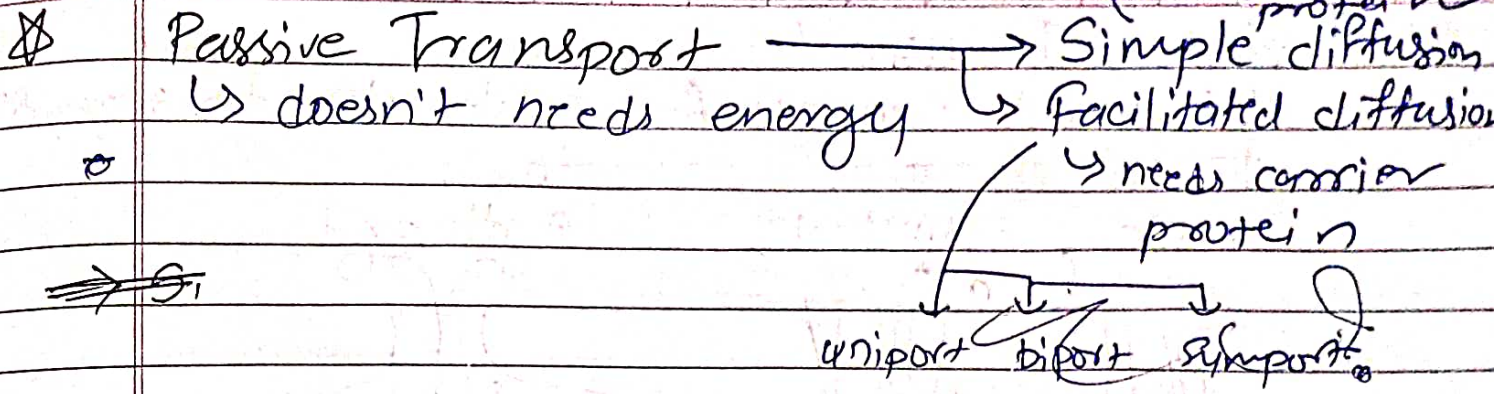 protein
Passive Transport → Simple diffusion
↳ doesn't needs energy ↳ Facilitated diffusion
↳ needs carrier
protein
uniport biport symport